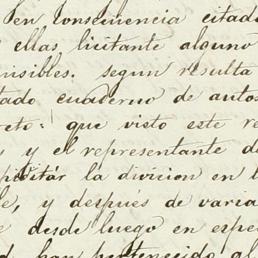 en consecuencia citado
ellas licitante alguno
nisibles. segun resulta
tado cuaderno de autos
reto: que visto este re
y el representante d
pilitar la divicion en l
le, y después de varia
e desde luego en espe
d han pertenecido al